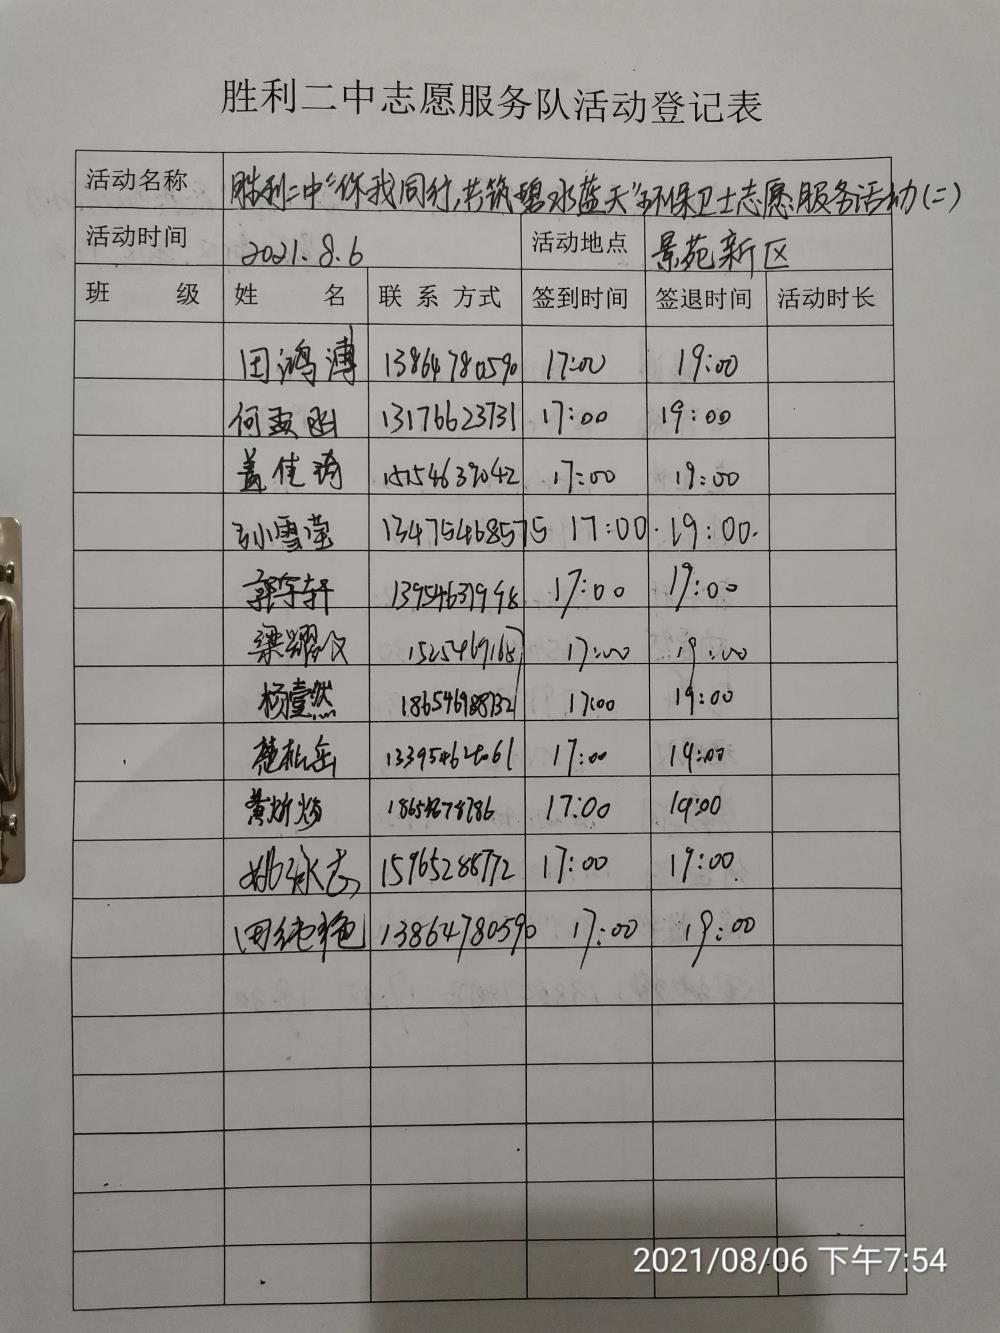 胜利二中志愿服务队活动登记表
活动名称 胜利二中"你我同行,共筑碧水蓝天"环保卫士志愿服务活动(二)
活动时间 2021.8.6 活动地点 景苑新区
班 级 姓 名 联 系 方式 签到时间 签退时间 活动时长
田鸿溥 13864780590 17:00 19:00
何 13176623731 17:00 19:00
盖佳琦 15154639042 17:00 19:00
孙雪莹 13475468575 17:00. 19:00.
郭宇轩 13954631998 17:00 19:00
梁耀 17:00 19:00
杨壹然 18654698832 17:00 19:00
楚松岳 17:00 19:00
黄 17:00 19:00
姚永志 15965288772 17:00 19:00
田纯艳 13864780590 17:00 19:00
2021/08/06 下午7:54